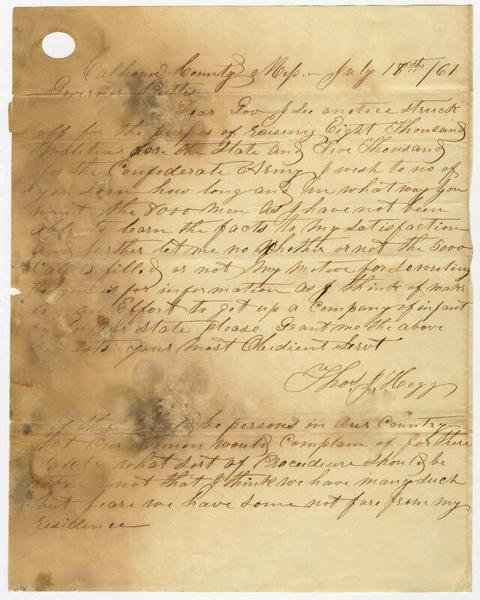 Calhoun County Miss. July 18th/61
Governor Pettis
Dear Gov I See a notice struck
off for the purpos of raising Eight Thousand
for the State and Five Thousand
for the Confederate Army I wish to no of
you soon how long and in what way you
want the 8000 men as I have not been
able to learn the facts to my satisfaction
and further let me no whether or not the 5000
Call is filled or not My motive for so writing
to you is for information as I think of mak
ing an Effort to get up a Company of infant
in our state please Grant me the above
your most Obedient Servt
Thos. J. Hogg
if there be persons in our Country
that our women would complain of for there
what sort of Proceedure Should be
not that I think we have many such
but feare we have some not fare from my
residence